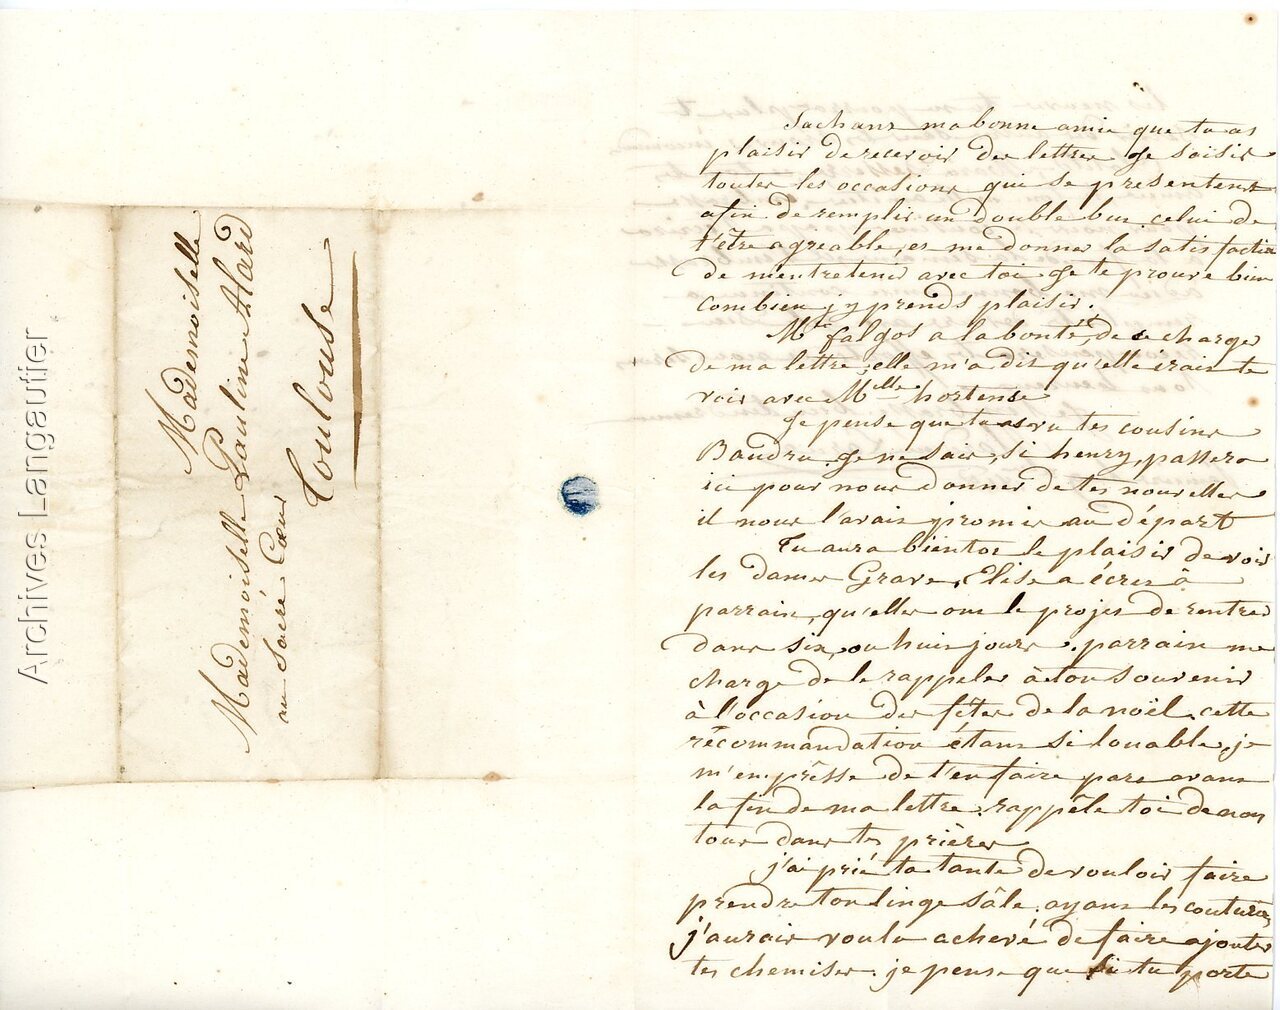 Archives Langautier
Mademoiselle
Mademoiselle Pauline Alard
au Sacré Cœur
Toulouse
Sachant ma bonne amie que tu as
plaisir de recevoir des lettres je saisis
toutes les occasions qui se presentent
afin de remplir un double but celui de
t'être agreable, et me donner la satisfaction
de m'entretenir avec toi je te prouve bien
combien j'y prends plaisir.
Mme falgos a la bonté de se charger
de ma lettre, elle m'a dit qu'elle irait te
voir avec Mlle hortense
Je pense que tu as vu tes cousins
Baudru. je ne sais, si henry, passera
ici pour nous donner de tes nouvelles
il nous l'avait promis au départ
Tu aura bientot le plaisir de voir
les dames Grave, Elise a écrit à
parrain, qu'elles ont le projet de rentrer
dans six, ou huit jours. parrain me
charge de le rappeler à ton souvenir
à l'occasion des fêtes de la noël. cette
récommandation étant si louable, je
m'emprêsse de t'en faire part avant
la fin de ma lettre. rappêle toi de nous
tous dans tes prières
j'ai prié ta tante de vouloir faire
prendre ton linge sâle. ayant les couturières
j'aurais voulu achevé de faire ajouter
tes chemises. je pense que si tu porte